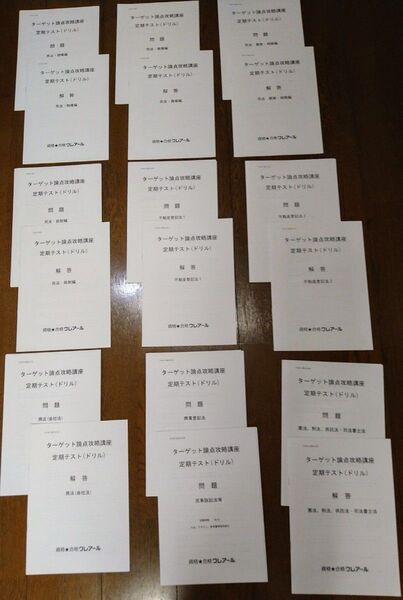 ターゲット論点攻略講座
定期テスト(ドリル)
問題
ターゲット論点攻略講座
定期テスト(ドリル)
解答
資格★合格クレアール
ターゲット論点攻略講座
定期テスト(ドリル)
問題
ターゲット論点攻略講座
定期テスト(ドリル)
解答
資格★合格クレアール
ターゲット論点攻略講座
定期テスト(ドリル)
問題
ターゲット論点攻略講座
定期テスト(ドリル)
解答
資格★合格クレアール
ターゲット論点攻略講座
定期テスト(ドリル)
問題
ターゲット論点攻略講座
定期テスト(ドリル)
解答
資格★合格クレアール
ターゲット論点攻略講座
定期テスト(ドリル)
問題
不動産登記法Ⅰ
ターゲット論点攻略講座
定期テスト(ドリル)
解答
不動産登記法Ⅰ
資格★合格クレアール
ターゲット論点攻略講座
定期テスト(ドリル)
問題
ターゲット論点攻略講座
定期テスト(ドリル)
解答
資格★合格クレアール
ターゲット論点攻略講座
定期テスト(ドリル)
問題
商法(会社法)
ターゲット論点攻略講座
定期テスト(ドリル)
解答
商法(会社法)
資格★合格クレアール
ターゲット論点攻略講座
定期テスト(ドリル)
問題
商業登記法
ターゲット論点攻略講座
定期テスト(ドリル)
問題
民事訴訟法等
資格★合格クレアール
ターゲット論点攻略講座
定期テスト(ドリル)
問題
憲法、刑法、供託法・司法書士法
ターゲット論点攻略講座
定期テスト(ドリル)
解答
憲法、刑法、供託法・司法書士法
資格★合格クレアール